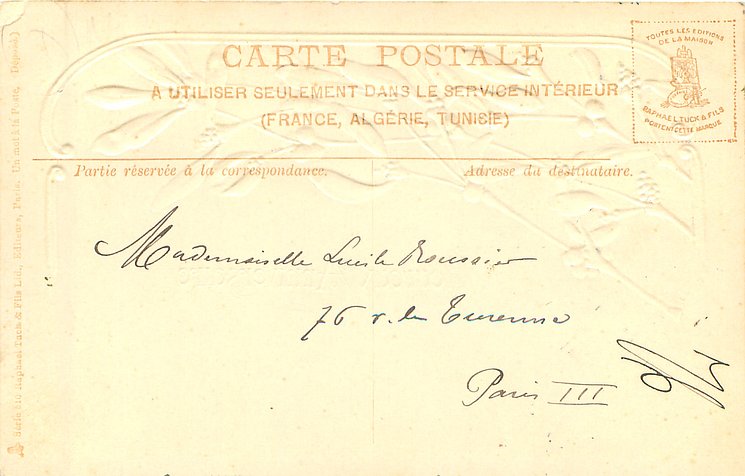 CARTE POSTALE
A UTILISER SEULEMENT DANS LE SERVICE INTÉRIEUR
(FRANCE, ALGÉRIE, TUNISIE)
TOUTES LES EDITIONS
DE LA MAISON
RAPHAEL TUCK & FILS
PORTENT CETTE MARQUE
Partie réservée à la correspondance.
Adresse du destinataire.
Mademoiselle Lucile
76 r. de Turenne
Paris III
Série 610 Raphael Tuck & Fils Ltd., Editeurs, Paris. Un mot à la Poste. Deposée)